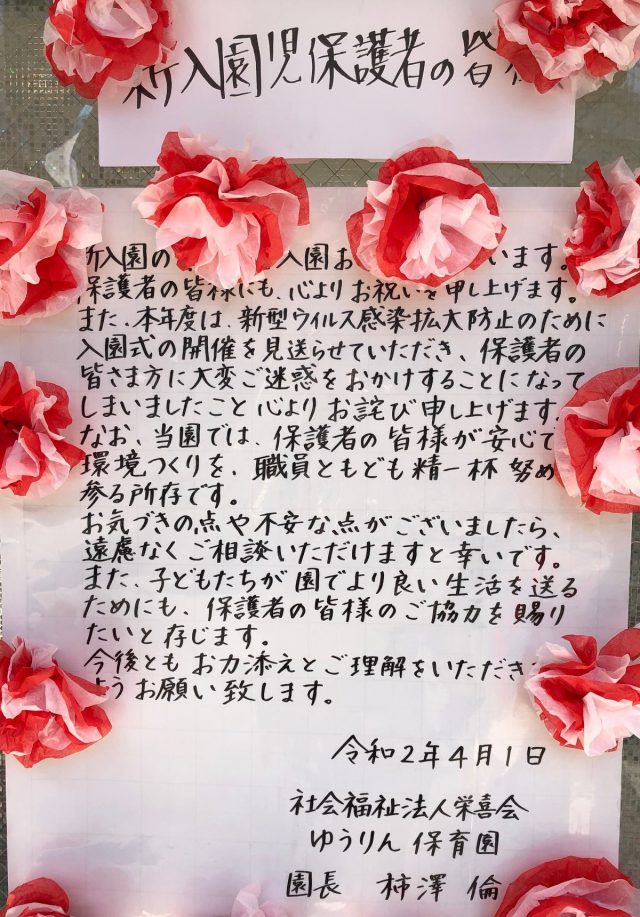 入園児保護者の皆
入園の 入園お います。
保護者の皆様にも、心よりお祝いを申し上げます。
また、本年度は、新型ウイルス感染拡大防止のために
入園式の開催を見送らせていただき、保護者の
皆さま方に大変ご迷惑をおかけすることになって
しまいましたこと心よりお詫び申し上げます。
なお、当園では、保護者の皆様が安心で
環境つくりを、職員ともども精一杯努め
参る所存です。
お気づきの点や不安な点がございましたら、
遠慮なくご相談いただけますと幸いです。
また、子どもたちが園でより良い生活を送る
ためにも、保護者の皆様のご協力を賜り
たいと存じます。
今後ともお力添えとご理解をいただき
ようお願い致します。
令和2年4月1日
社会福祉法人栄喜会
ゆうりん保育園
園長 柿澤 倫